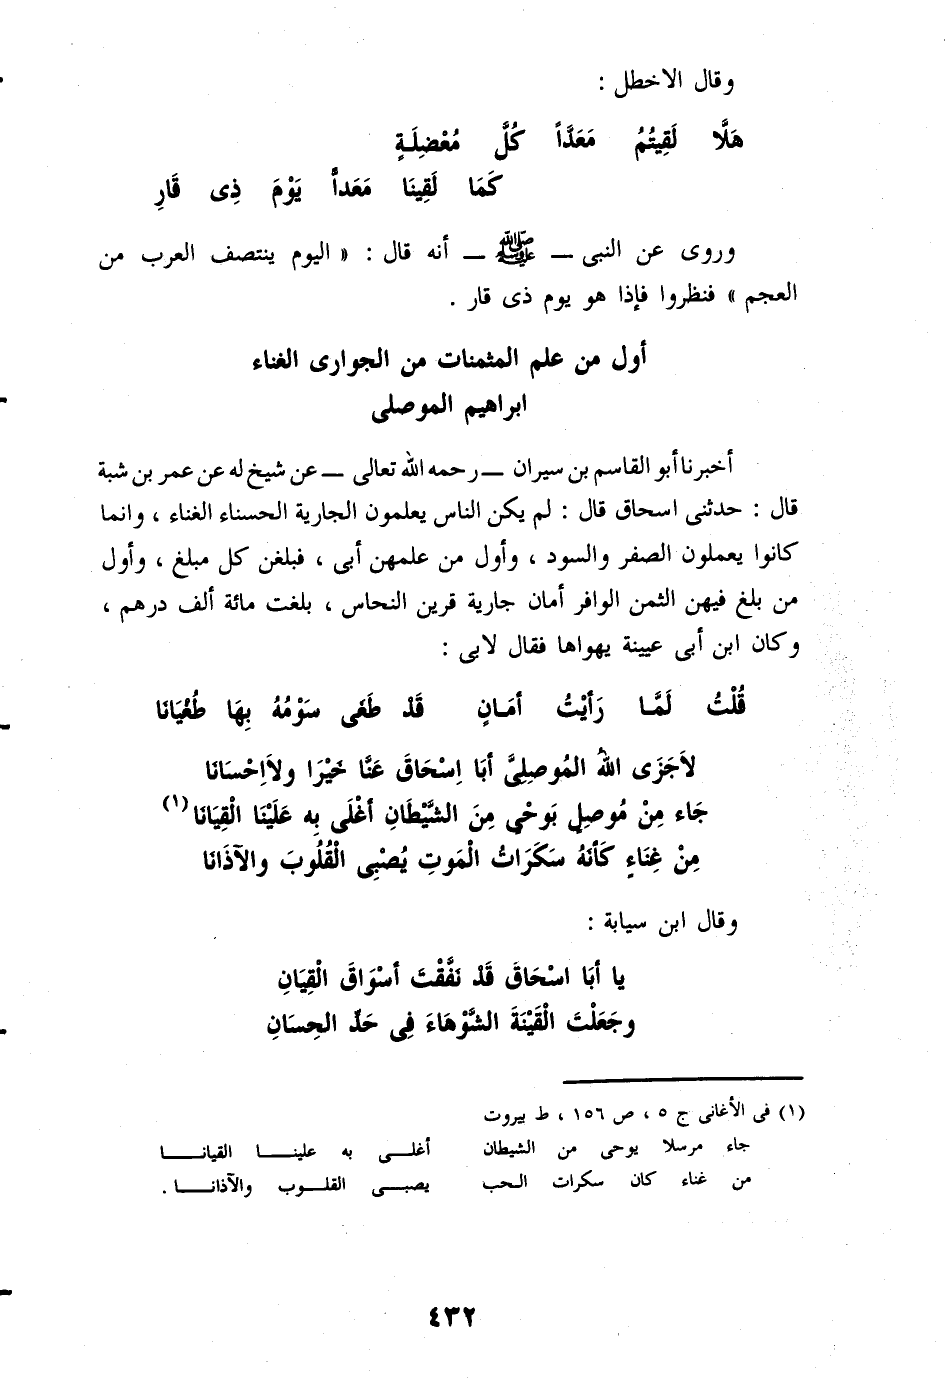 وقال الاخطل :
هَلَّا لَقِيتُمُ مَعَدَّاً كُلَّ مُعْضِلَـةٍ
كَمَا لَقِينَا مَعَداًّ يَوْمَ ذِى قَارِ
وروى عن النبى — ﷺ — أنه قال : « اليوم ينتصف العرب من
العجم » فنظروا فإذا هو يوم ذى قار .
أول من علم المثمنات من الجوارى الغناء
ابراهيم الموصلى
أخبرنا أبو القاسم بن سيران — رحمه الله تعالى — عن شيخ له عن عمر بن شبة
قال : حدثنى اسحاق قال : لم يكن الناس يعلمون الجارية الحسناء الغناء ، وانما
كانوا يعملون الصفر والسود ، وأول من علمهن أبى ، فبلغن كل مبلغ ، وأول
من بلغ فيهن الثمن الوافر أمان جارية قرين النحاس ، بلغت مائة ألف درهم ،
وكان ابن أبى عيينة يهواها فقال لابى :
قُلْتُ لَمَّـا رَأيْتُ أمَـانٍ قَدْ طَغَى سَوْمُهُ بِهَا طُغْيَانَا
لاَجَزَى اللهُ المُوصِلِىَّ أبَا اِسْحَاقَ عَنَّا خَيْرَا ولاَاِحْسَانَا
جَاء مِنْ مُوصِلٍ بَوحْىٍ مِنَ الشَّيْطَانِ أغْلَى بِه عَلَيْنَا الْقِيَانَا (١)
مِنْ غِنَاءٍ كَأنَهُ سَكَرَاتُ الْمَوتِ يُصْبِى الْقُلُوبَ والآذَانَا
وقال ابن سيابة :
يا أبَا اسْحَاقَ قَدْ نَفَّقْتَ أسْوَاقَ الْقِيَانِ
وجَعَلْتَ الْقَيْنَةَ الشَّوْهَاءَ فِى حَدِّ الحِسَانِ
(١) فى الأغانى ج ٥ ، ص ١٥٦ ، ط بيروت
جاء مرسلا يوحى من الشيطان أغلـى به علينـــا القيانـــا
من غناء كان سكرات الـحب يصبــى القلــوب والآذانـــا .
٤٣٢